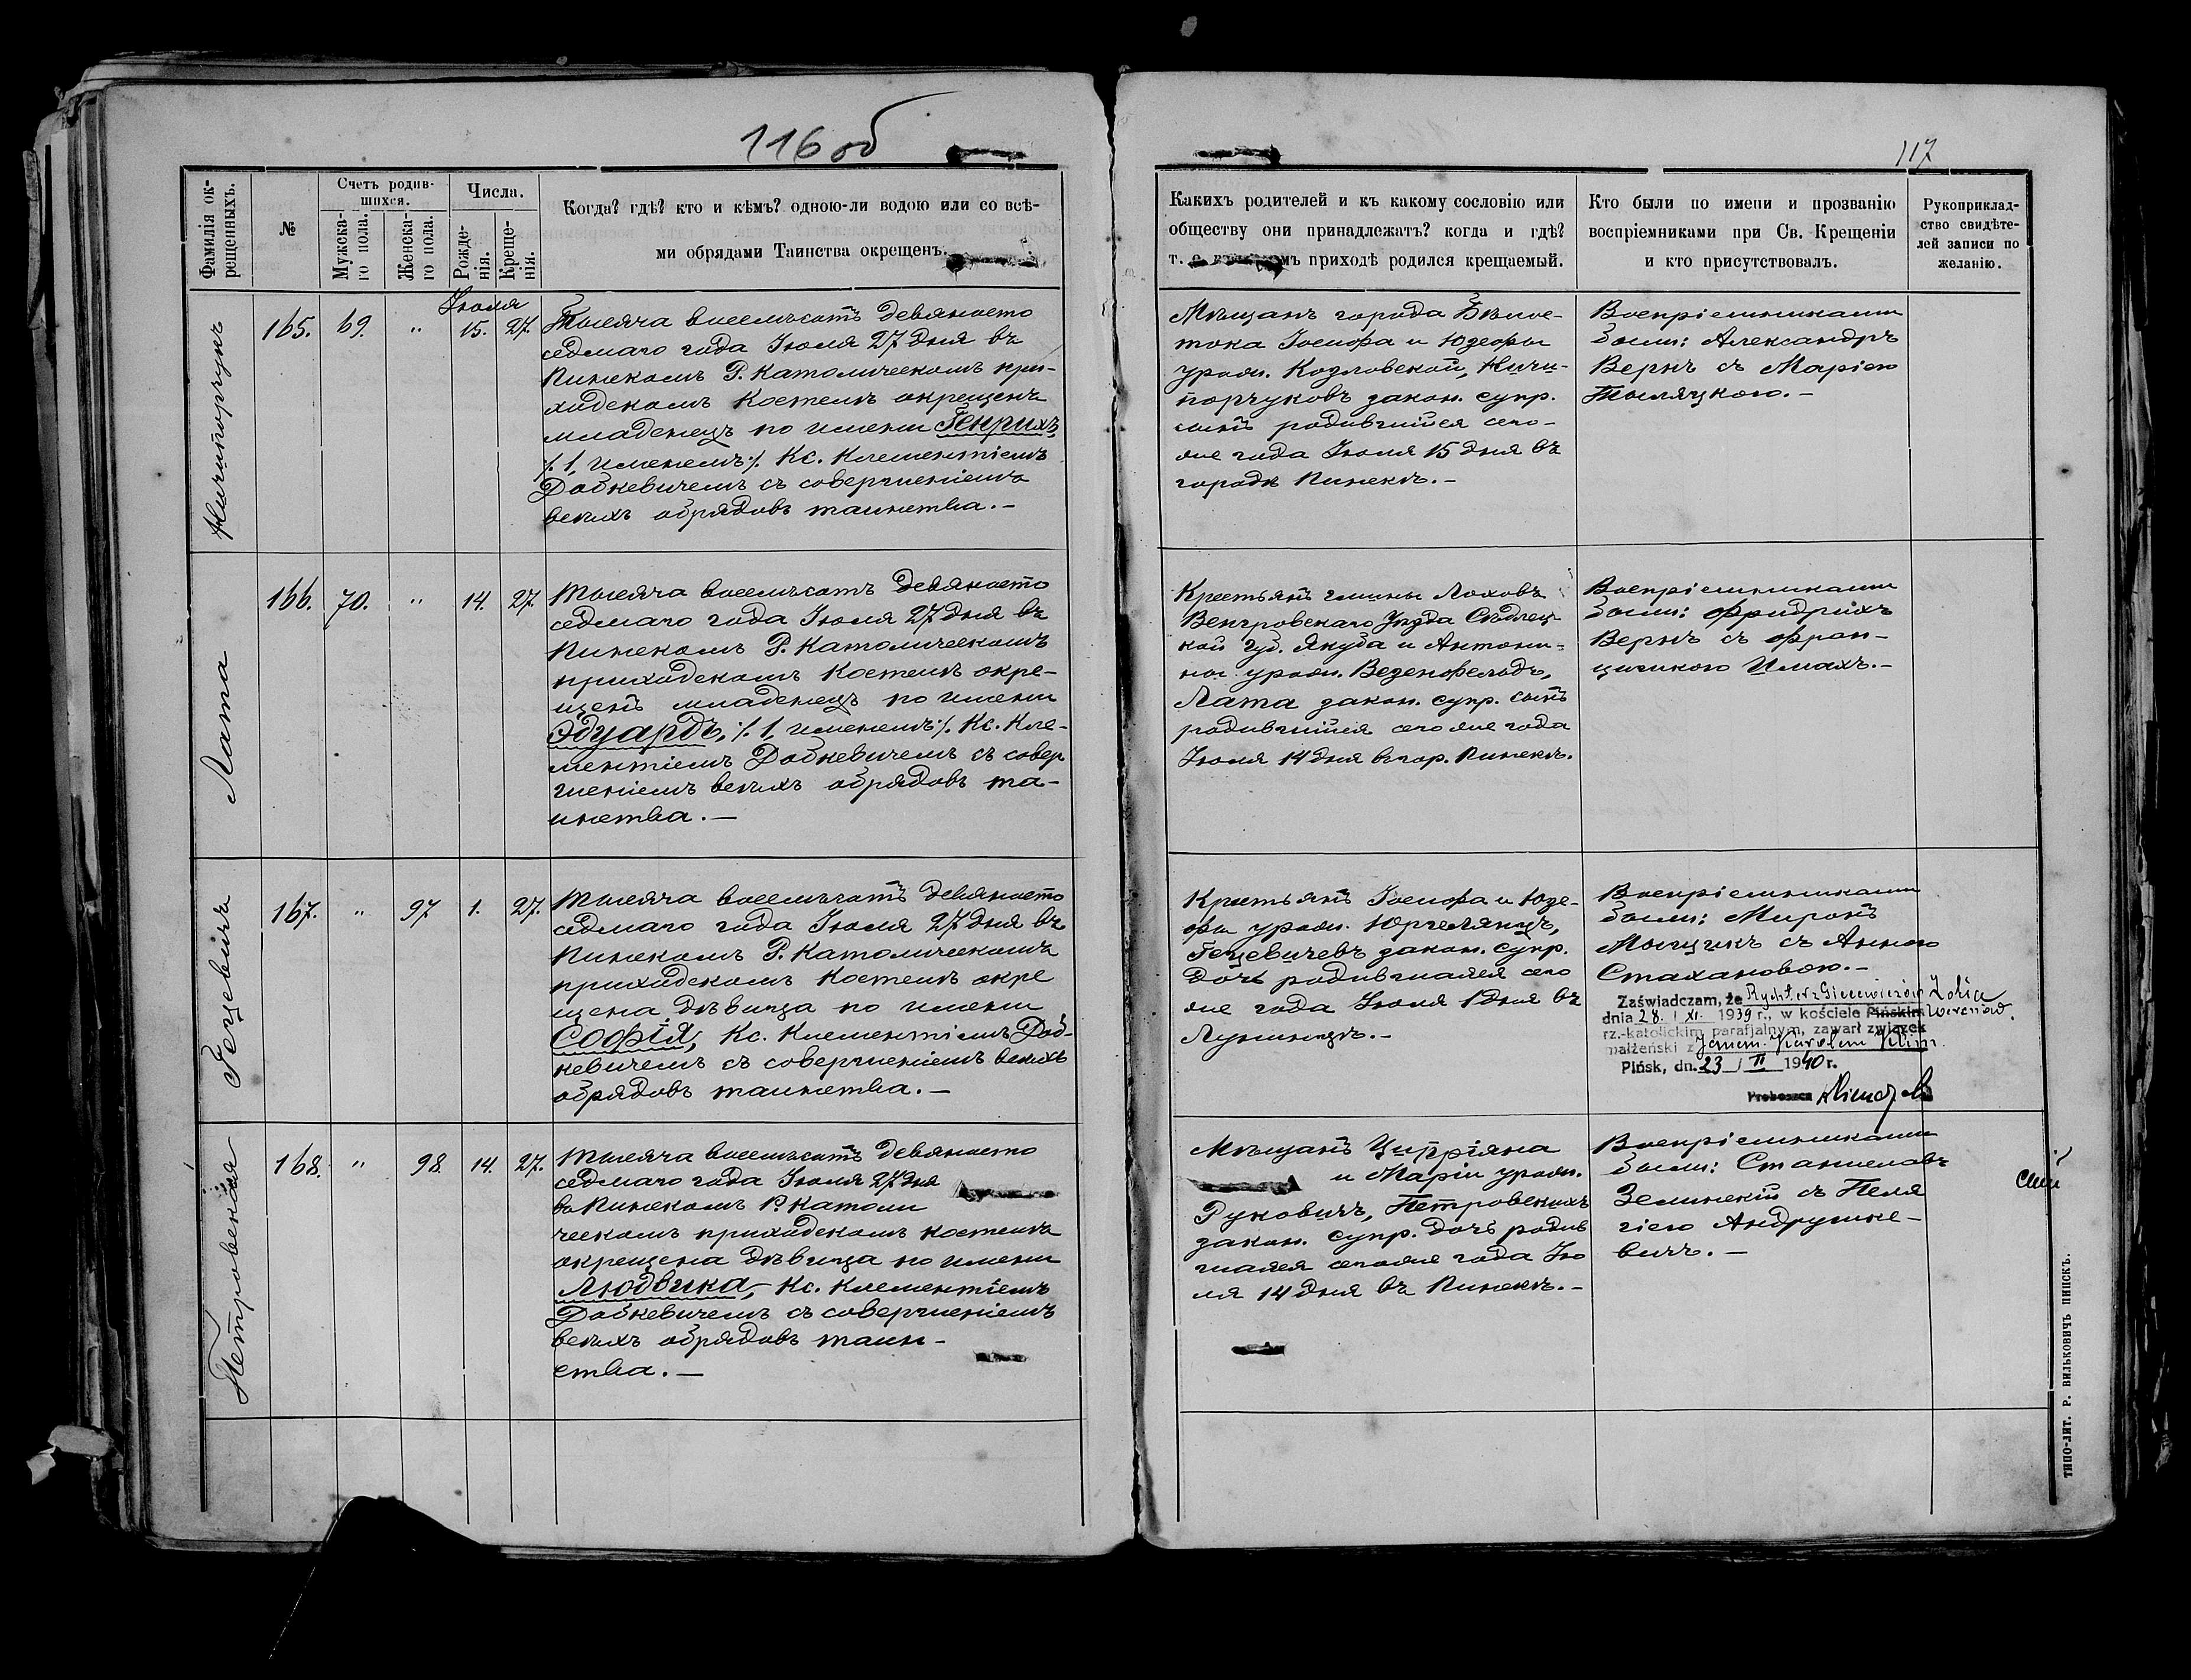 116 об
117
Фамилія ок-
рещенныхъ.
№
Счетъ родив-
шихся.
Мужска-
го пола.
Женска-
го пола.
Числа.
Рожде-
нія.
Креще-
нія.
Когда? гдѣ? кто и кѣмъ? одною-ли водою или со всѣ-
ми обрядами Таинства окрещенъ.
Каихъ родителей и къ какому сословію или
обществу они принадлежатъ? когда и гдѣ?
т. е. приходѣ родился крещаемый.
Кто были по имени и прозванію
воспріемниками при Св. Крещеніи
и кто присутствовалъ.
Рукоприклад-
ство свидѣте-
лей записи по
желанію.
Ничипорчукъ
165. 69. " Іюля 15. 27.
Тысяча восемьсотъ девяносто
седмаго года Іюля 27 дня въ
Пинскомъ Р. Католическомъ при-
ходскомъ костелѣ окрещенъ
младенецъ по имени Генрихъ
/. 1, именемъ ./. Кс. Клементіемъ
Добкевичемъ съ совершеніемъ
всѣхъ обрядовъ таинства. –
Мѣщанъ города Бѣлос-
тока Іосифа и Юзефы
урожд. Козловской, Ничи-
порчуковъ закон. супр.
сынъ родившійся сего-
же года Іюля 15 дня въ
городѣ Пинскѣ. –
Воспріемниками
были: Александръ
Вернъ съ Маріею
–
Лата
166. 70. " 14. 27.
Тысяча восемьсотъ девяносто
седмаго года Іюля 27 дня въ
Пинскомъ Р. Католическомъ
приходскомъ костелѣ окре-
щенъ младенецъ по имени
Эдуардъ, /. 1, именемъ ./. Кс. Кле-
ментіемъ Добкевичемъ съ совер
шеніемъ всѣхъ обрядовъ та-
инства. –
Крестьянъ гмины Лоховъ
Венгровскаго Уѣзда Сѣдлец-
кой Губ. Якуба и Антони-
ны урожд. Веденфельдъ,
Лата закон. супр. сынъ
родившійся сего же года
Іюля 14 дня въ гор. Пинскѣ.
Воспріемниками
были: Фридрихъ
Вернъ съ Фран-
цишкою Шмахъ. –
Гецевичъ
167. " 97 1. 27.
Тысяча восемьсотъ девяносто
седмаго года Іюля 27 дня въ
Пинскомъ Р. Католическомъ
приходскомъ костелѣ окре
щена дѣвица по имени
Софія, Кс. Клементіемъ Доб-
кевичемъ съ совершеніемъ всѣхъ
обрядовъ таинства. –
Крестьянъ Іосифа и Юзе-
фы урожд. Юргелянецъ,
Гецевичевъ закон. супр.
дочь родившаяся сего
же года Іюля 1 дня въ
Лунинцѣ. –
Воспріемниками
были: Миронъ
съ Анною
Стахановою. –
Zaświadczam, że Rychter z Giecewiczów Zofia
dnia 28. / XI. 1939 r., w kościele Pińskim
rz.-katolickim parafjalnym, zawarł związek
małżeński z Janem Karolem Klim
Pińsk, dn. 23 / II 1940 r.
Proboszcz
Петровская
168. " 98. 14. 27.
Тысяча восемьсотъ девяносто
седмаго года Іюля 27 дня
въ Пинскомъ Р. Католи
ческомъ приходскомъ костелѣ
окрещена дѣвица по имени
Людвика, – Кс. Клементіемъ
Добкевичемъ съ совершеніемъ
всѣхъ обрядовъ таин-
ства. –
Мѣщанъ Ципріяна
и Маріи урожд.
Руковичъ, Петровскихъ
закон. супр. дочь родив
шаяся сегоже года Ію
ля 14 дня въ Пинскѣ. –
Воспріемниками
были: Станиславъ
Зелинскій съ Пеля
гіею Андрушке-
вичъ. –
ТИПО-ЛИТ. Р. ВИЛЬКОВИЧЪ ПИНСКЪ.